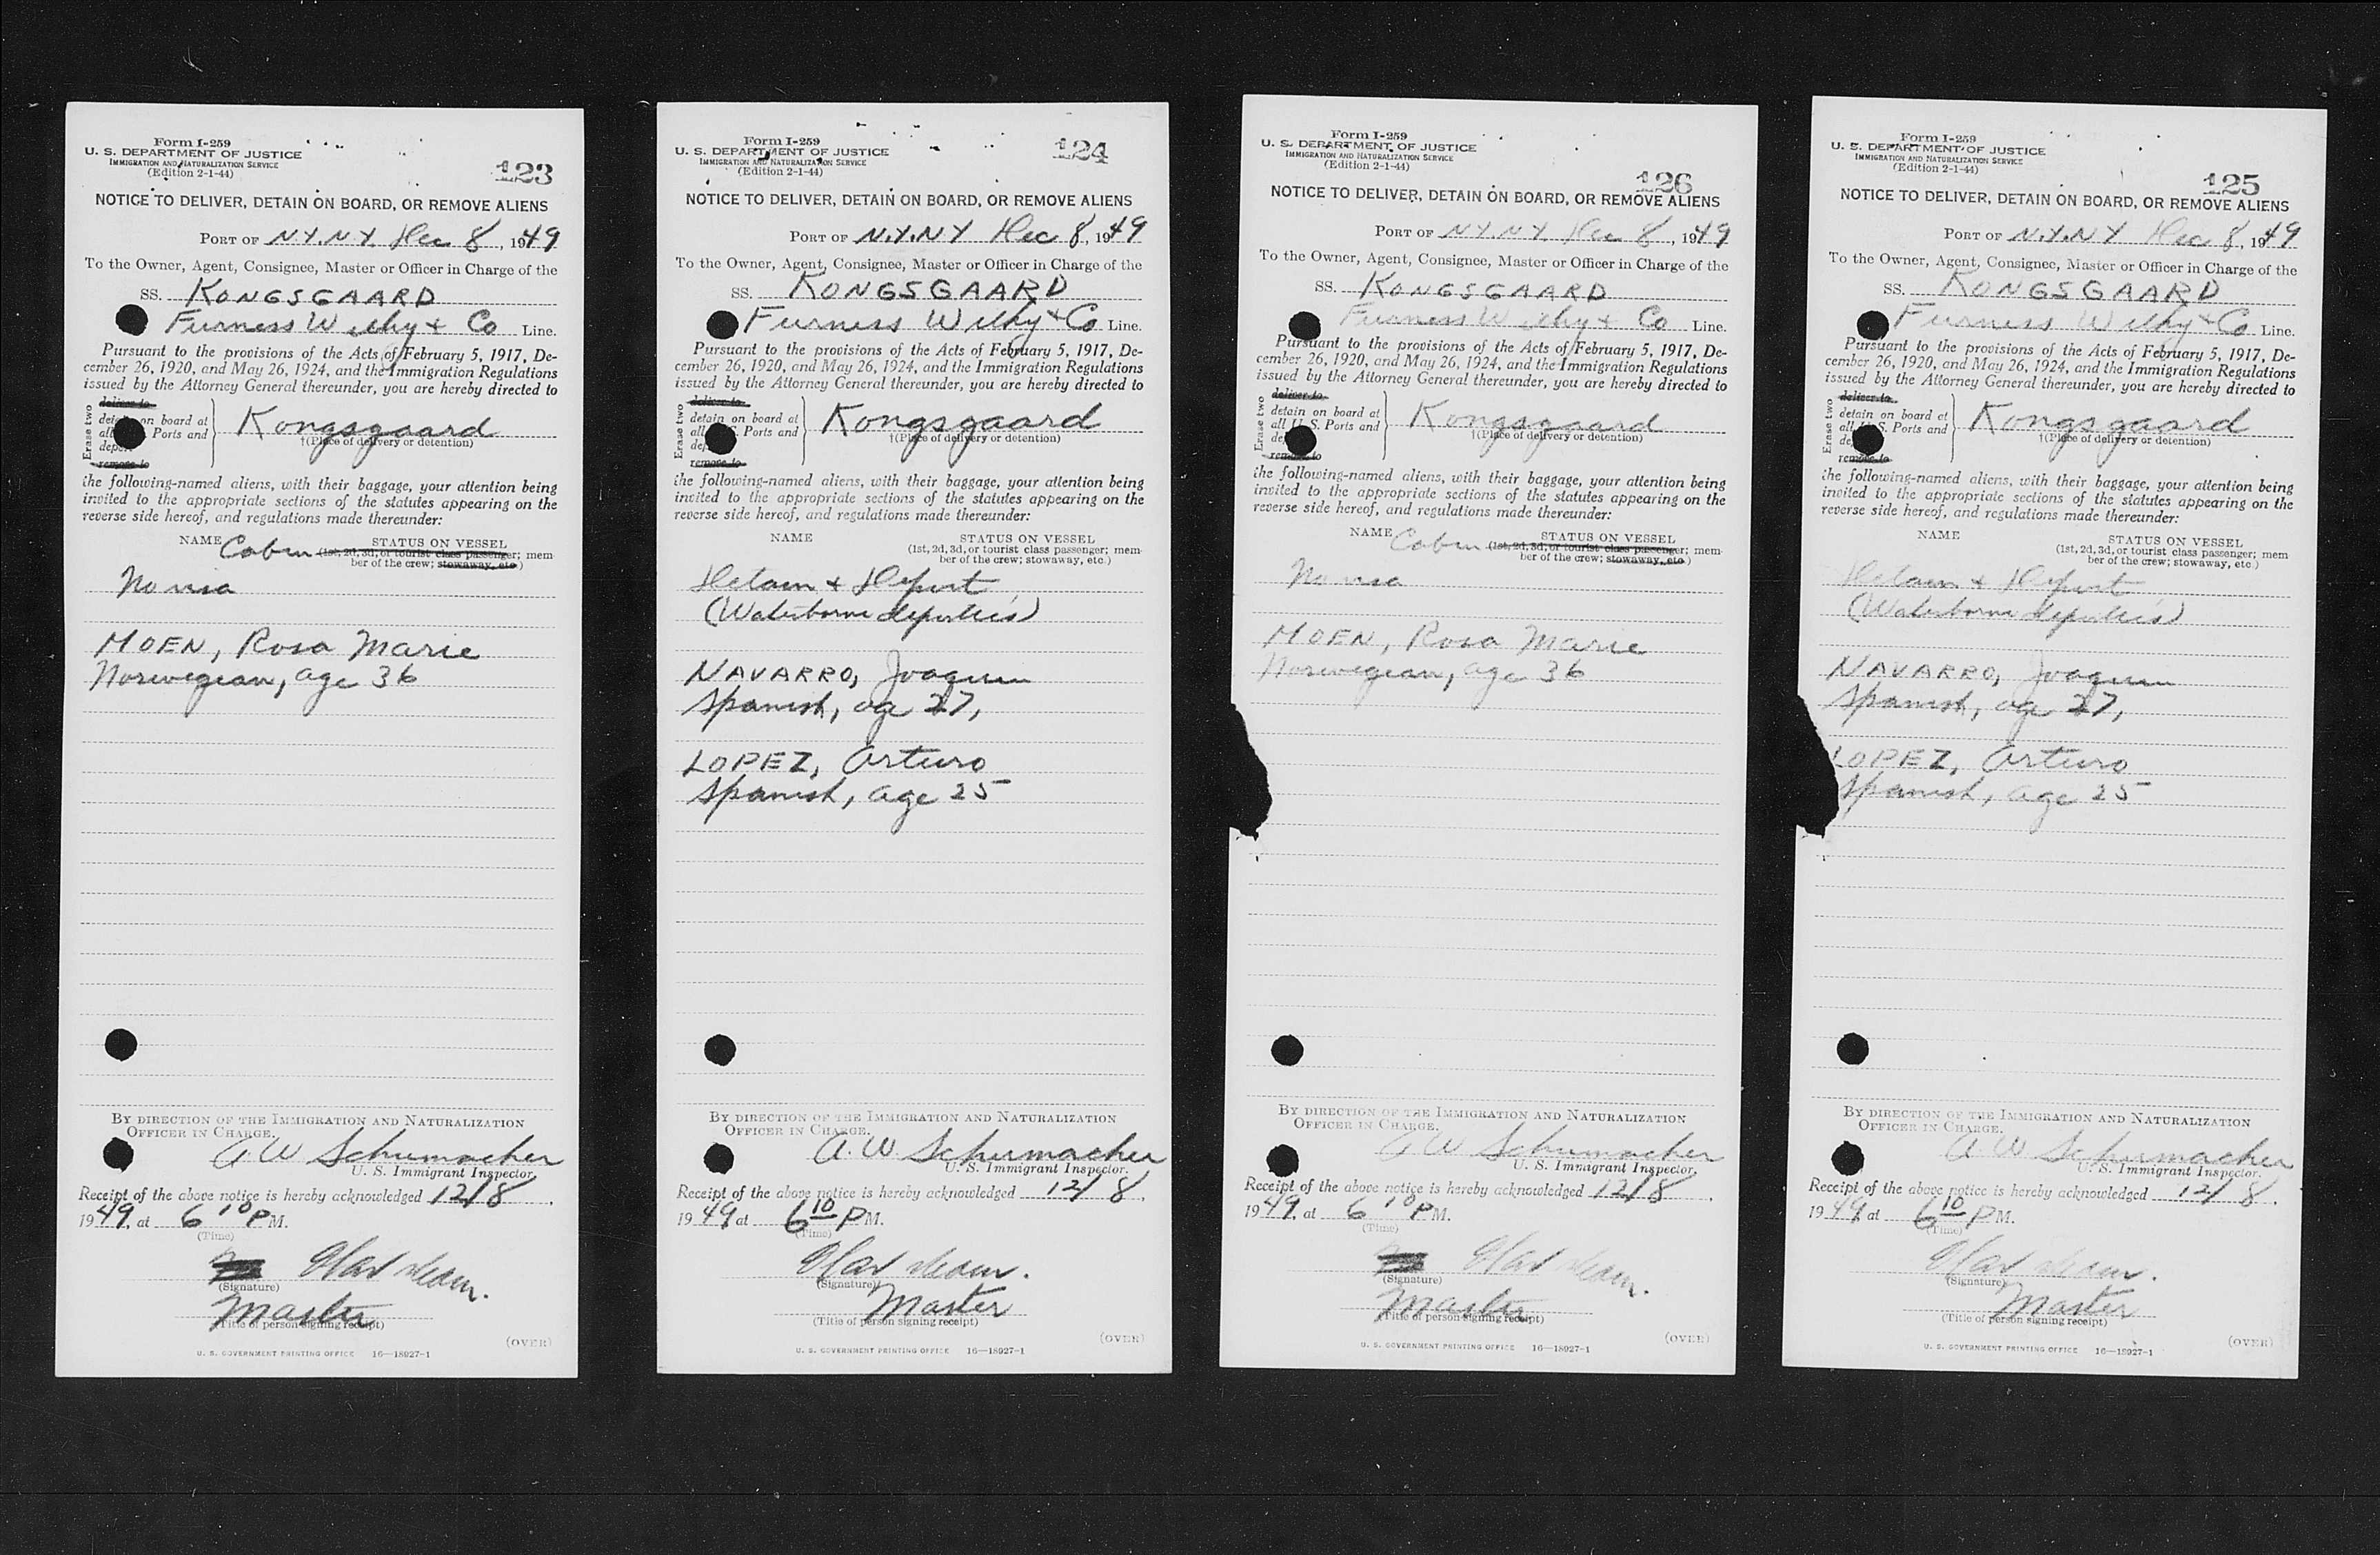 Form I-259
U. S. DEPARTMENT OF JUSTICE
IMMIGRATION AND NATURALIZATION SERVICE
(Edition 2-1-44)
123
NOTICE TO DELIVER, DETAIN ON BOARD, OR REMOVE ALIENS
PORT OF N.Y.N.Y. Dec 8, 1949
To the Owner, Agent, Consignee, Master or Officer in Charge of the
SS. KONGSGAARD
Furness Withy + Co Line.
Pursuant to the provisions of the Acts of February 5, 1917, De-
cember 26, 1920, and May 26, 1924, and the Immigration Regulations
issued by the Attorney General thereunder, you are hereby directed to
Erase two
deliver to
detain on board at
all Ports and
deport
remove to
Kongsgaard
†(Place of delivery or detention)
the following-named aliens, with their baggage, your attention being
invited to the appropriate sections of the statutes appearing on the
reverse side hereof, and regulations made thereunder:
NAME Cabin STATUS ON VESSEL
(1st, 2d, 3d, or tourist class passenger; mem-
ber of the crew; stowaway, etc.)
No visa
MOEN, Rosa Marie
Norwegian, age 36
BY DIRECTION OF THE IMMIGRATION AND NATURALIZATION
OFFICER IN CHARGE.
A W Schumacher
U. S. Immigrant Inspector.
Receipt of the above notice is hereby acknowledged 12/8,
1949, at 6 10 PM.
(Time)
(Signature)
Master
(Title of person signing receipt)
(OVER)
U. S. GOVERNMENT PRINTING OFFICE 16—18927-1
Form I-259
U. S. DEPARTMENT OF JUSTICE
IMMIGRATION AND NATURALIZATION SERVICE
(Edition 2-1-44)
124
NOTICE TO DELIVER, DETAIN ON BOARD, OR REMOVE ALIENS
PORT OF N.Y.N.Y Dec 8, 1949
To the Owner, Agent, Consignee, Master or Officer in Charge of the
SS. KONGSGAARD
Furness Withy + Co. Line.
Pursuant to the provisions of the Acts of February 5, 1917, De-
cember 26, 1920, and May 26, 1924, and the Immigration Regulations
issued by the Attorney General thereunder, you are hereby directed to
Erase two
deliver to
detain on board at
all S. Ports and
remove to
Kongsgaard
†(Place of delivery or detention)
the following-named aliens, with their baggage, your attention being
invited to the appropriate sections of the statutes appearing on the
reverse side hereof, and regulations made thereunder:
NAME STATUS ON VESSEL
(1st, 2d, 3d, or tourist class passenger; mem-
ber of the crew; stowaway, etc.)
Detain + Deport
(Waterborne deportees)
NAVARRO, Joaquin
Spanish, age 27,
LOPEZ, Arturo
Spanish, age 25
BY DIRECTION OF THE IMMIGRATION AND NATURALIZATION
OFFICER IN CHARGE.
A. W Schumacher
U. S. Immigrant Inspector.
Receipt of the above notice is hereby acknowledged 12/8,
1949 at 6 10 PM.
(Time)
(Signature)
Master
(Title of person signing receipt)
(OVER)
U. S. GOVERNMENT PRINTING OFFICE 16—18927-1
Form I-259
U. S. DEPARTMENT OF JUSTICE
IMMIGRATION AND NATURALIZATION SERVICE
(Edition 2-1-44)
126
NOTICE TO DELIVER, DETAIN ON BOARD, OR REMOVE ALIENS
PORT OF N.Y.N.Y. Dec 8, 1949
To the Owner, Agent, Consignee, Master or Officer in Charge of the
SS. KONGSGAARD
Furness Withy + Co Line.
Pursuant to the provisions of the Acts of February 5, 1917, De-
cember 26, 1920, and May 26, 1924, and the Immigration Regulations
issued by the Attorney General thereunder, you are hereby directed to
Erase two
deliver to
detain on board at
all U. S. Ports and
remove to
Kongsgaard
†(Place of delivery or detention)
the following-named aliens, with their baggage, your attention being
invited to the appropriate sections of the statutes appearing on the
reverse side hereof, and regulations made thereunder:
NAME Cabin STATUS ON VESSEL
(1st, 2d, 3d, or tourist class passenger; mem-
ber of the crew; stowaway, etc.)
No visa
MOEN, Rosa Marie
Norwegian, age 36
BY DIRECTION OF THE IMMIGRATION AND NATURALIZATION
OFFICER IN CHARGE.
A W Schumacher
U. S. Immigrant Inspector.
Receipt of the above notice is hereby acknowledged 12/8,
1949, at 6 10 PM.
(Time)
(Signature)
Master
(Title of person signing receipt)
(OVER)
U. S. GOVERNMENT PRINTING OFFICE 16—18927-1
Form I-259
U. S. DEPARTMENT OF JUSTICE
IMMIGRATION AND NATURALIZATION SERVICE
(Edition 2-1-44)
125
NOTICE TO DELIVER, DETAIN ON BOARD, OR REMOVE ALIENS
PORT OF N.Y.N.Y Dec 8, 1949
To the Owner, Agent, Consignee, Master or Officer in Charge of the
SS. KONGSGAARD
Furness Withy + Co. Line.
Pursuant to the provisions of the Acts of February 5, 1917, De-
cember 26, 1920, and May 26, 1924, and the Immigration Regulations
issued by the Attorney General thereunder, you are hereby directed to
Erase two
deliver to
detain on board at
all S. Ports and
remove to
Kongsgaard
†(Place of delivery or detention)
the following-named aliens, with their baggage, your attention being
invited to the appropriate sections of the statutes appearing on the
reverse side hereof, and regulations made thereunder:
NAME STATUS ON VESSEL
(1st, 2d, 3d, or tourist class passenger; mem
ber of the crew; stowaway, etc.)
Detain + Deport
(Waterborne deportees)
NAVARRO, Joaquin
Spanish, age 27,
LOPEZ, Arturo
Spanish, age 25
BY DIRECTION OF THE IMMIGRATION AND NATURALIZATION
OFFICER IN CHARGE.
A. W Schumacher
U. S. Immigrant Inspector.
Receipt of the above notice is hereby acknowledged 12/8,
1949 at 6 10 PM.
(Time)
(Signature)
Master
(Title of person signing receipt)
(OVER)
U. S. GOVERNMENT PRINTING OFFICE 16—18927-1